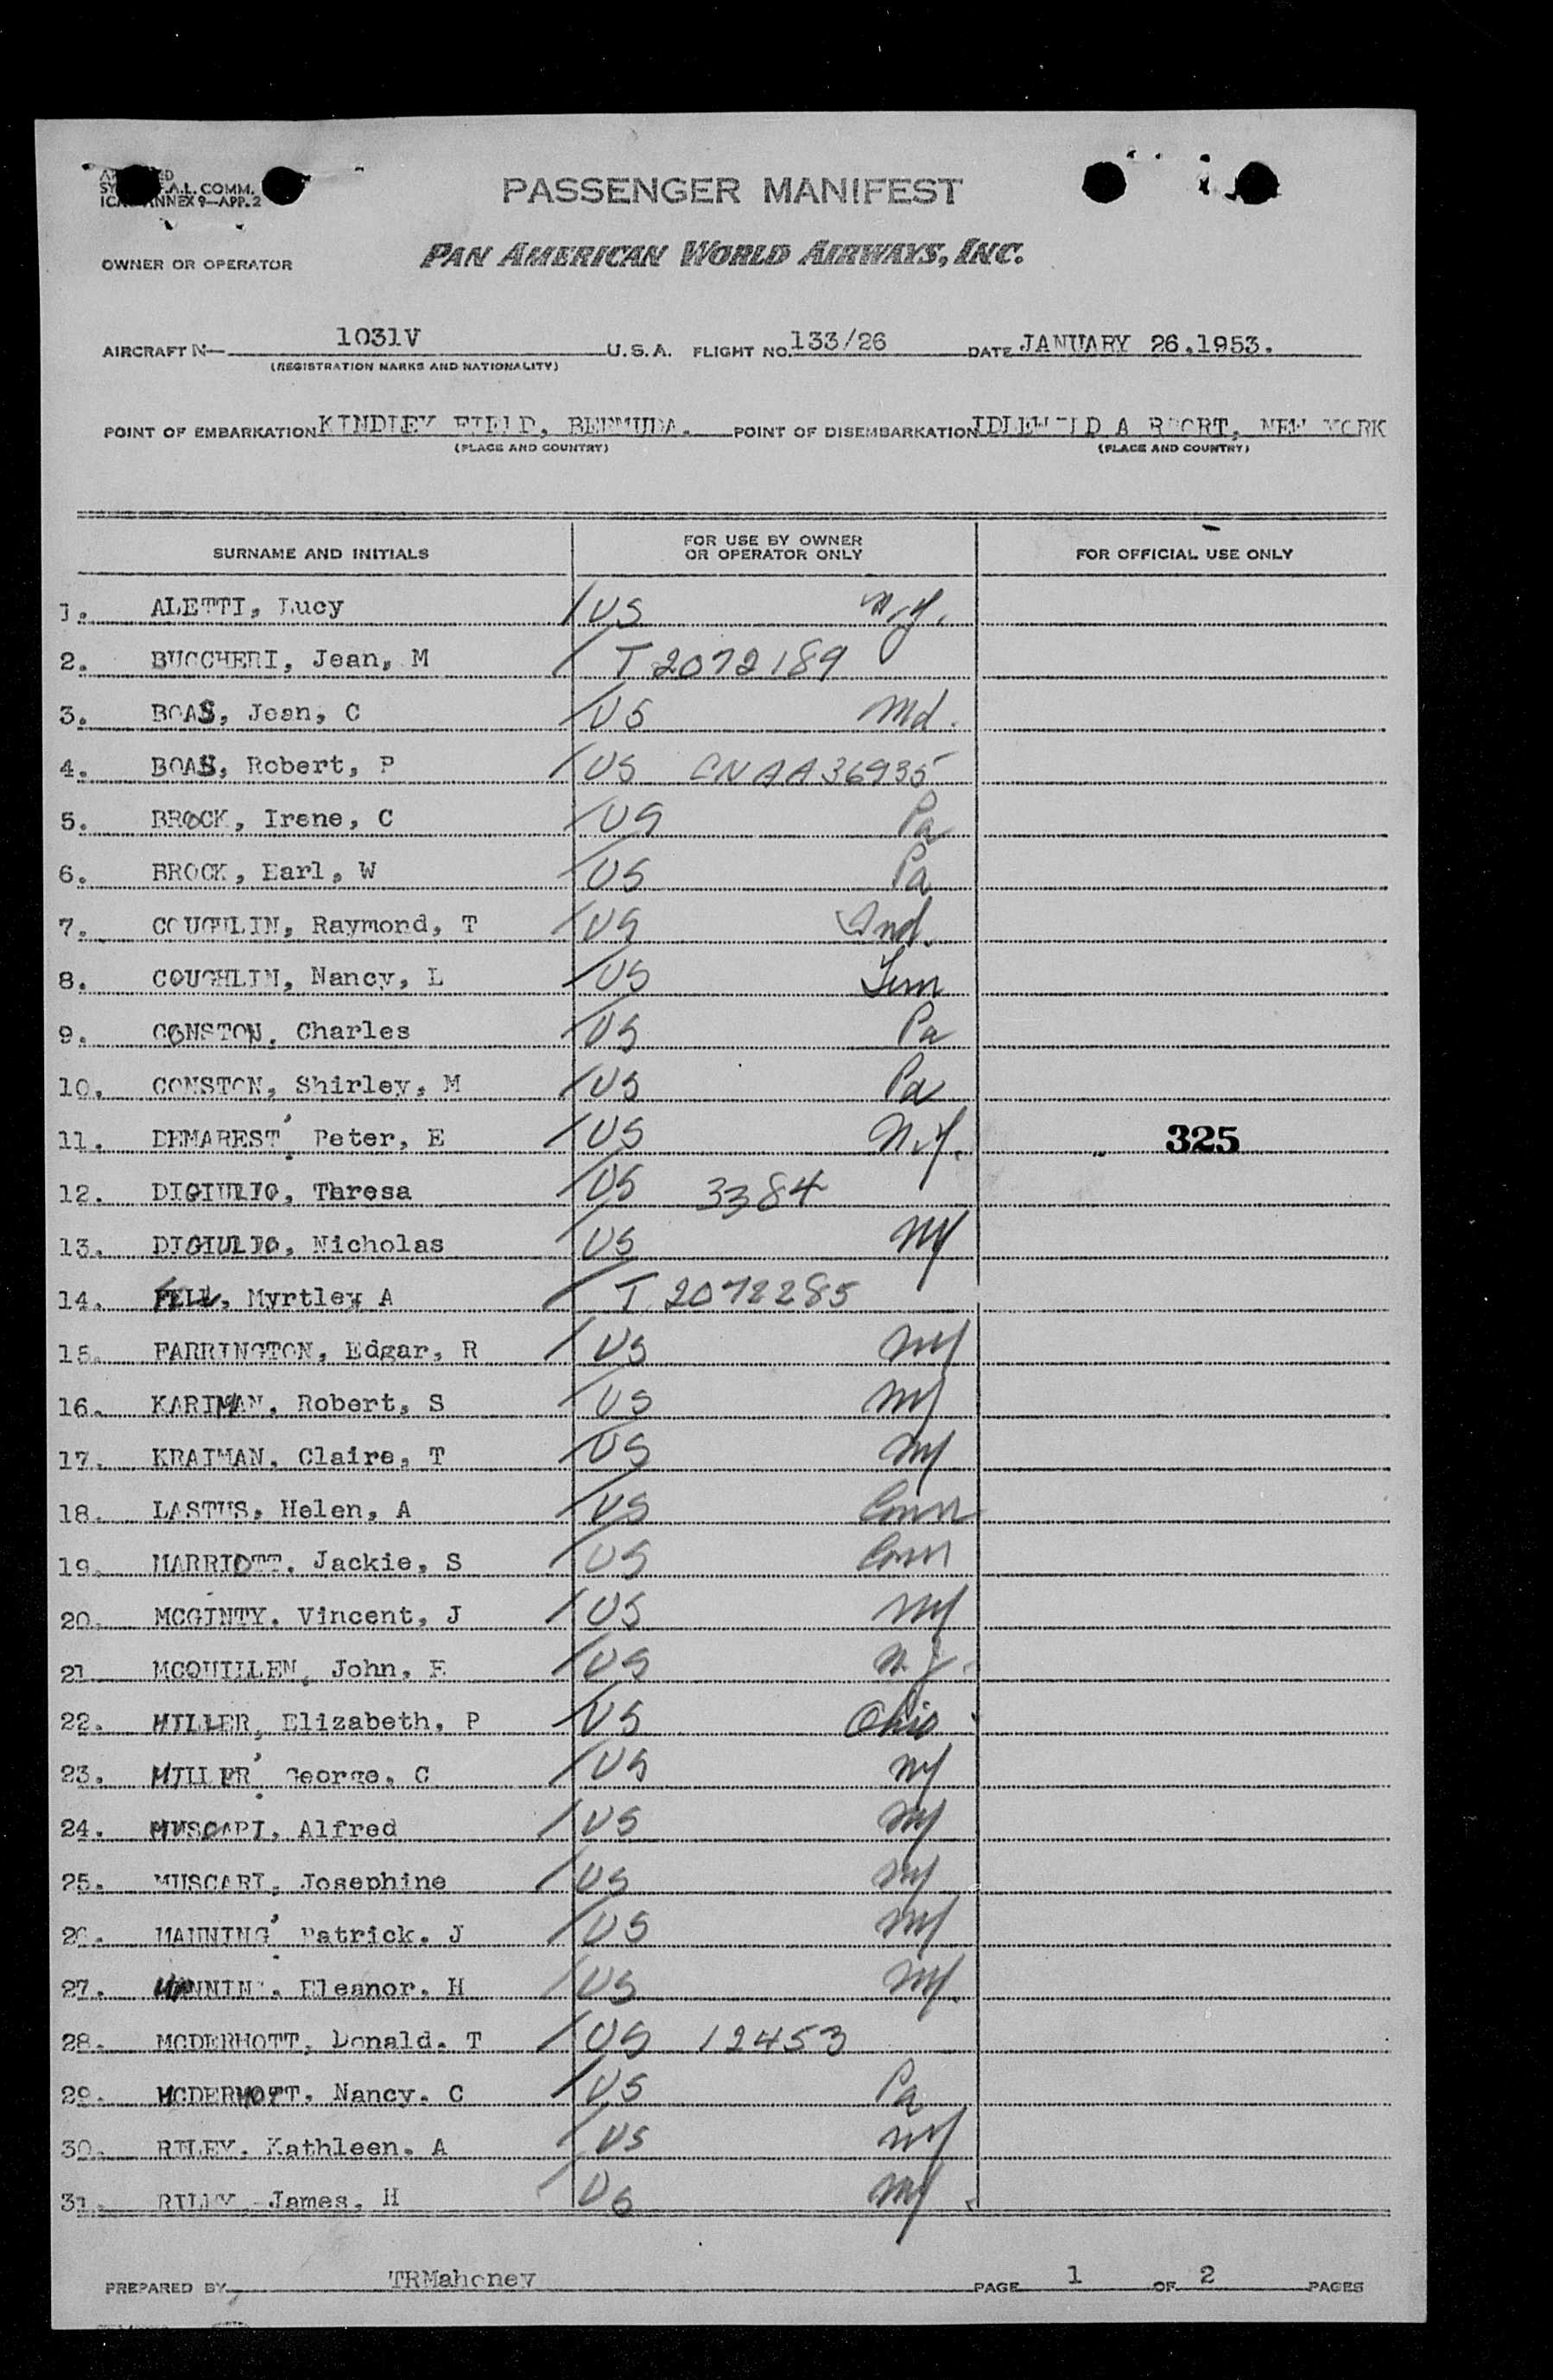 PASSENGER MANIFEST
A.L. COMM.
ANNEX 9—APP. 2
OWNER OR OPERATOR PAN AMERICAN WORLD AIRWAYS, INC.
AIRCRAFT N— 1031V U.S.A. FLIGHT NO. 133/26 DATE JANUARY 26.1953.
(REGISTRATION MARKS AND NATIONALITY)
POINT OF EMBARKATION KINDLEY FIELD, BERMUDA. POINT OF DISEMBARKATION IDLEWILD A RPORT, NEW YORK
(PLACE AND COUNTRY) (PLACE AND COUNTRY)
SURNAME AND INITIALS FOR USE BY OWNER OR OPERATOR ONLY FOR OFFICIAL USE ONLY
1. ALETTI, Lucy / US N.Y.
2. BUCCHERI, Jean, M / T 2072189
3. BOAS, Jean, C / US Md.
4. BOAS, Robert, P / US CNAA36935
5. BROCK, Irene, C / US Pa
6. BROCK, Earl, W / US Pa
7. COUGHLIN, Raymond, T / US Ind.
8. COUGHLIN, Nancy, L / US
9. CONSTON, Charles / US Pa
10. CONSTON, Shirley, M / US Pa
11. DEMAREST, Peter, E / US N.Y. 325
12. DIGIULIO, Tharesa / US 3384
13. DIGIULIO, Nicholas / US NY
14. FELL, Myrtley A / T 2072285
15. FARRINGTON, Edgar, R / US NY
16. KARIMAN, Robert, S / US NY
17. KRAIMAN, Claire, T / US NY
18. LASTUS, Helen, A / US Conn
19. MARRIOTT, Jackie, S / US Conn
20. MCGINTY, Vincent, J / US NY
21 MCQUILLEN, John, E / US N.J.
22. MILLER, Elizabeth, P / US Ohio
23. MILLER, George, C / US NY
24. MUSCARI, Alfred / US NY
25. MUSCARI, Josephine / US NY
26. MANNING, Patrick. J / US NY
27. MANNING. Eleanor. H / US NY.
28. MCDERMOTT, Donald. T / US 12453
29. MCDERMOTT. Nancy. C / US Pa
30. RILEY. Kathleen. A / US NY
31. RILEY James, H / US NY
PREPARED BY TRMahoney PAGE 1 OF 2 PAGES